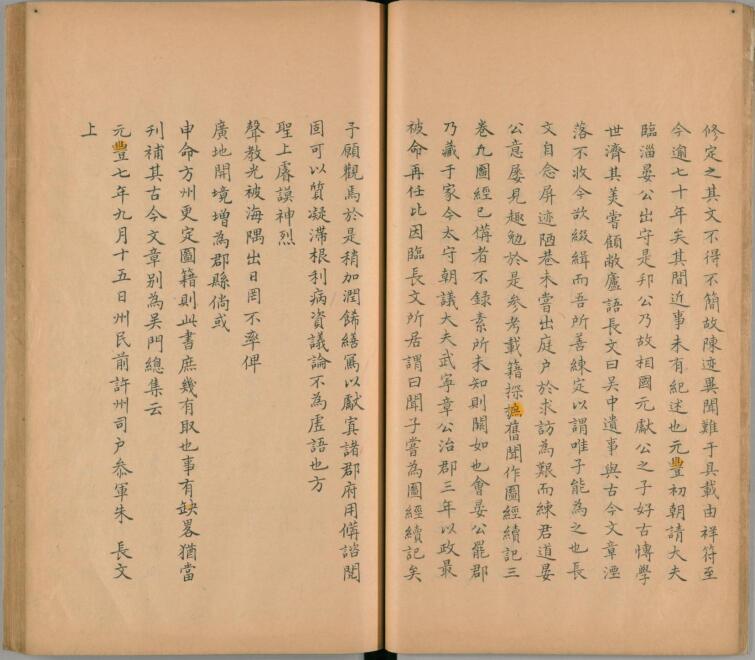 修定之其文不得不簡故陳迹異聞難于具載由祥符至
今逾七十年矣其間近事未有紀述也元豐初朝請大夫
臨淄晏公出守是邦公乃故相國元獻公之子好古愽學
世濟其美嘗顧敝廬語長文曰吳中遺事與古今文章湮
落不收今欲綴緝而吾所善練定以謂唯子能為之也長
文自念屏迹陋巷未嘗出庭户於求訪為艱而練君道晏
公意屡見趣勉於是參考載籍探摭舊聞作圖經續記三
卷凡圖經已僃者不錄素所未知則闕如也會晏公罷郡
乃藏于家今太守朝議大夫武寧章公治郡三年以政最
被命再任比因臨長文所居謂曰聞子嘗為圖經續記矣
予願觀焉於是稍加潤餙繕寫以獻寘諸郡府用僃諮閱
固可以質凝滯根利病資議論不為虗語也方
聖上睿謨神烈
聲教光被海隅出日罔不率俾
廣地開境增為郡縣倘或
申命方州更定圖籍則此書庶幾有取也事有缺畧猶當
刊補其古今文章別為吳門總集云
元豐七年九月十五日州民前許州司户叅軍朱 長文
上